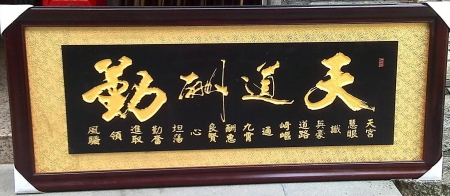 天道酬勤
天宮
慧眼
識
英豪
道路
崎嶇
通
九霄
酬惠
良賢
心
坦蕩
勤奮
進取
領
風騷